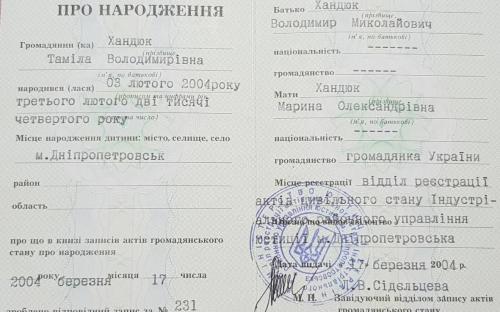 ПРО НАРОДЖЕННЯ
Громадянин (ка) Хандюк
(прізвище,
Таміла Володимирівна
ім'я, по батькові)
народився (лася) 03 лютого 2004року
третього лютого дві тисячі
четвертого року
Місце народження дитини: місто, селище, село
м.Дніпропетровськ
район
область
про що в книзі записів актів громадянського
стану про народження
2004 року березня місяця 17 числа
зроблено відповідний запис за № 231
Батько Хандюк
(прізвище,
Володимир Миколайович
ім'я, по батькові)
національність -------
громадянство -------
Мати Хандюк
(прізвище,
Марина Олександрівна
ім'я, по батькові)
національність -------
громадянство громадянка України
Місце реєстрації відділ реєстрації
актів цивільного стану Індустрі-
ального районного управління
юстиції м.Дніпропетровська
Дата видачі 17 березня 2004 р.
Л.В.Сідельцева
М. П. Завідуючий відділом запису актів
громадянського стану